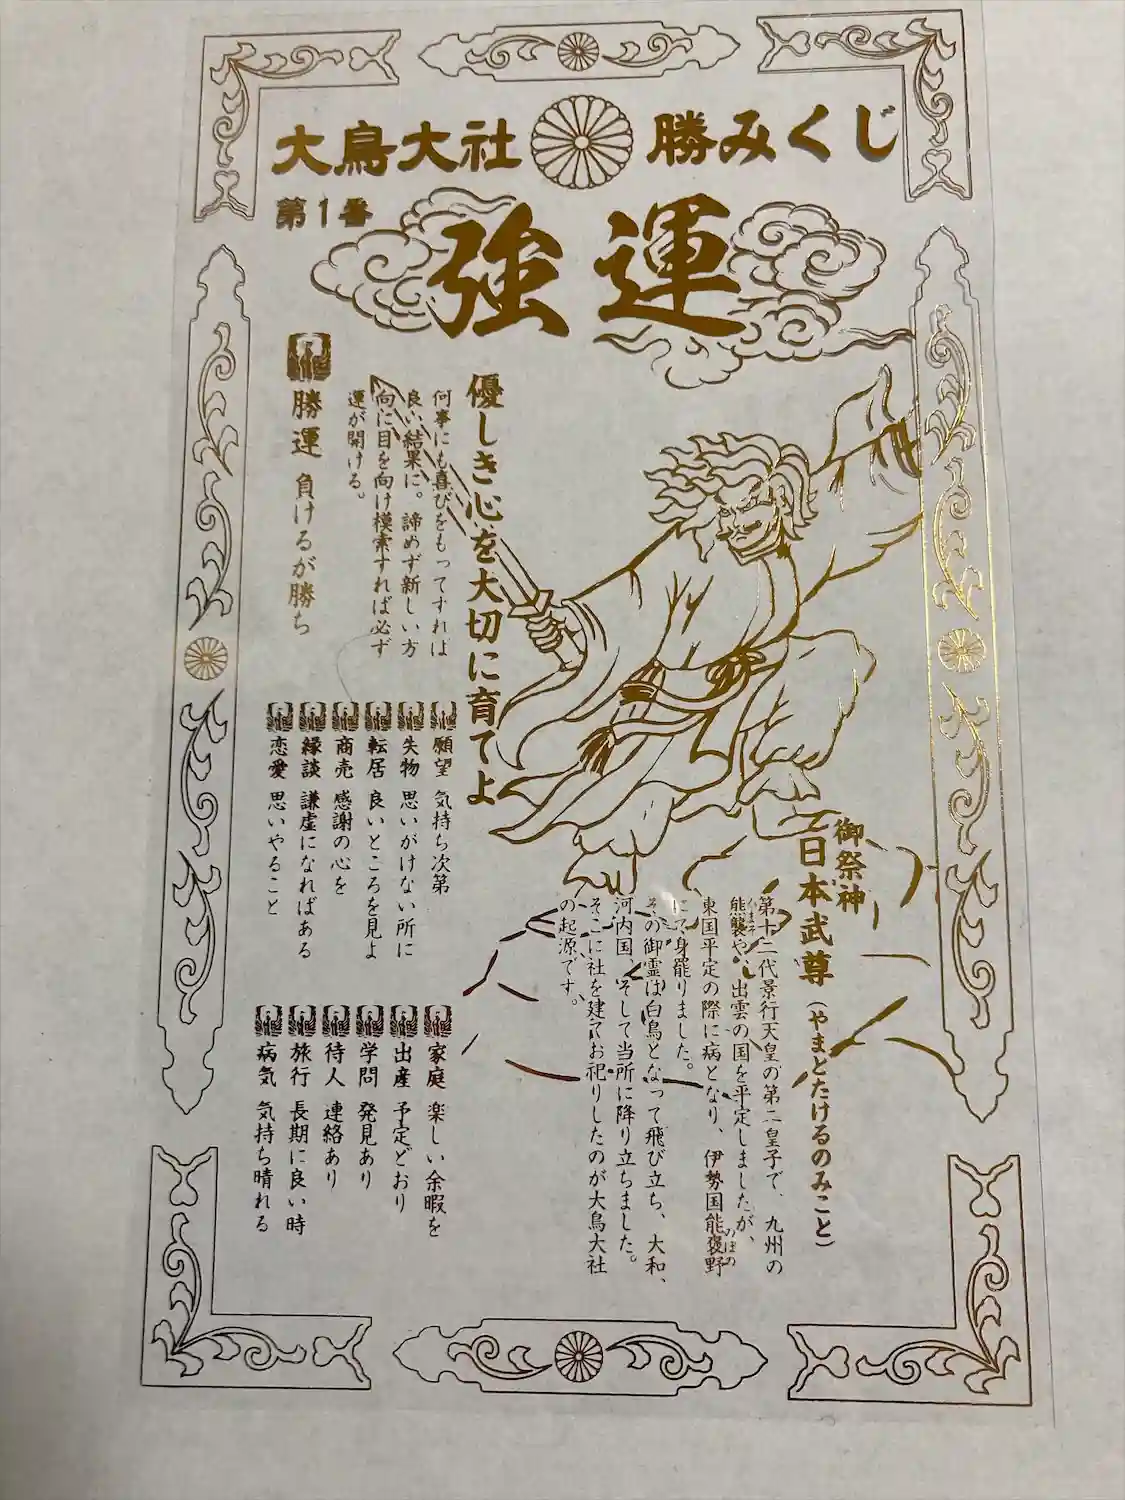 大鳥大社 勝みくじ
第1番
強運
優しき心を大切に育てよ
何事にも喜びをもってすれば
良い結果に。諦めず新しい方
向に目を向け模索すれば必ず
運が開ける。
勝運 負けるが勝ち
願望 気持ち次第
失物 思いがけない所に
転居 良いところを見よ
商売 感謝の心を
縁談 謙虚になればある
恋愛 思いやること
家庭 楽しい余暇を
出産 予定どおり
学問 発見あり
待人 連絡あり
旅行 長期に良い時
病気 気持ち晴れる
御祭神
日本武尊(やまとたけるのみこと)
第十二代景行天皇の第二皇子で、九州の
熊襲や、出雲の国を平定しましたが、
くまそ
東国平定の際に病となり、伊勢国能褒野
のぼの
にて身罷りました。
その御霊は白鳥となって飛び立ち、大和、
河内国、そして当所に降り立ちました。
そこに社を建てお祀りしたのが大鳥大社
の起源です。